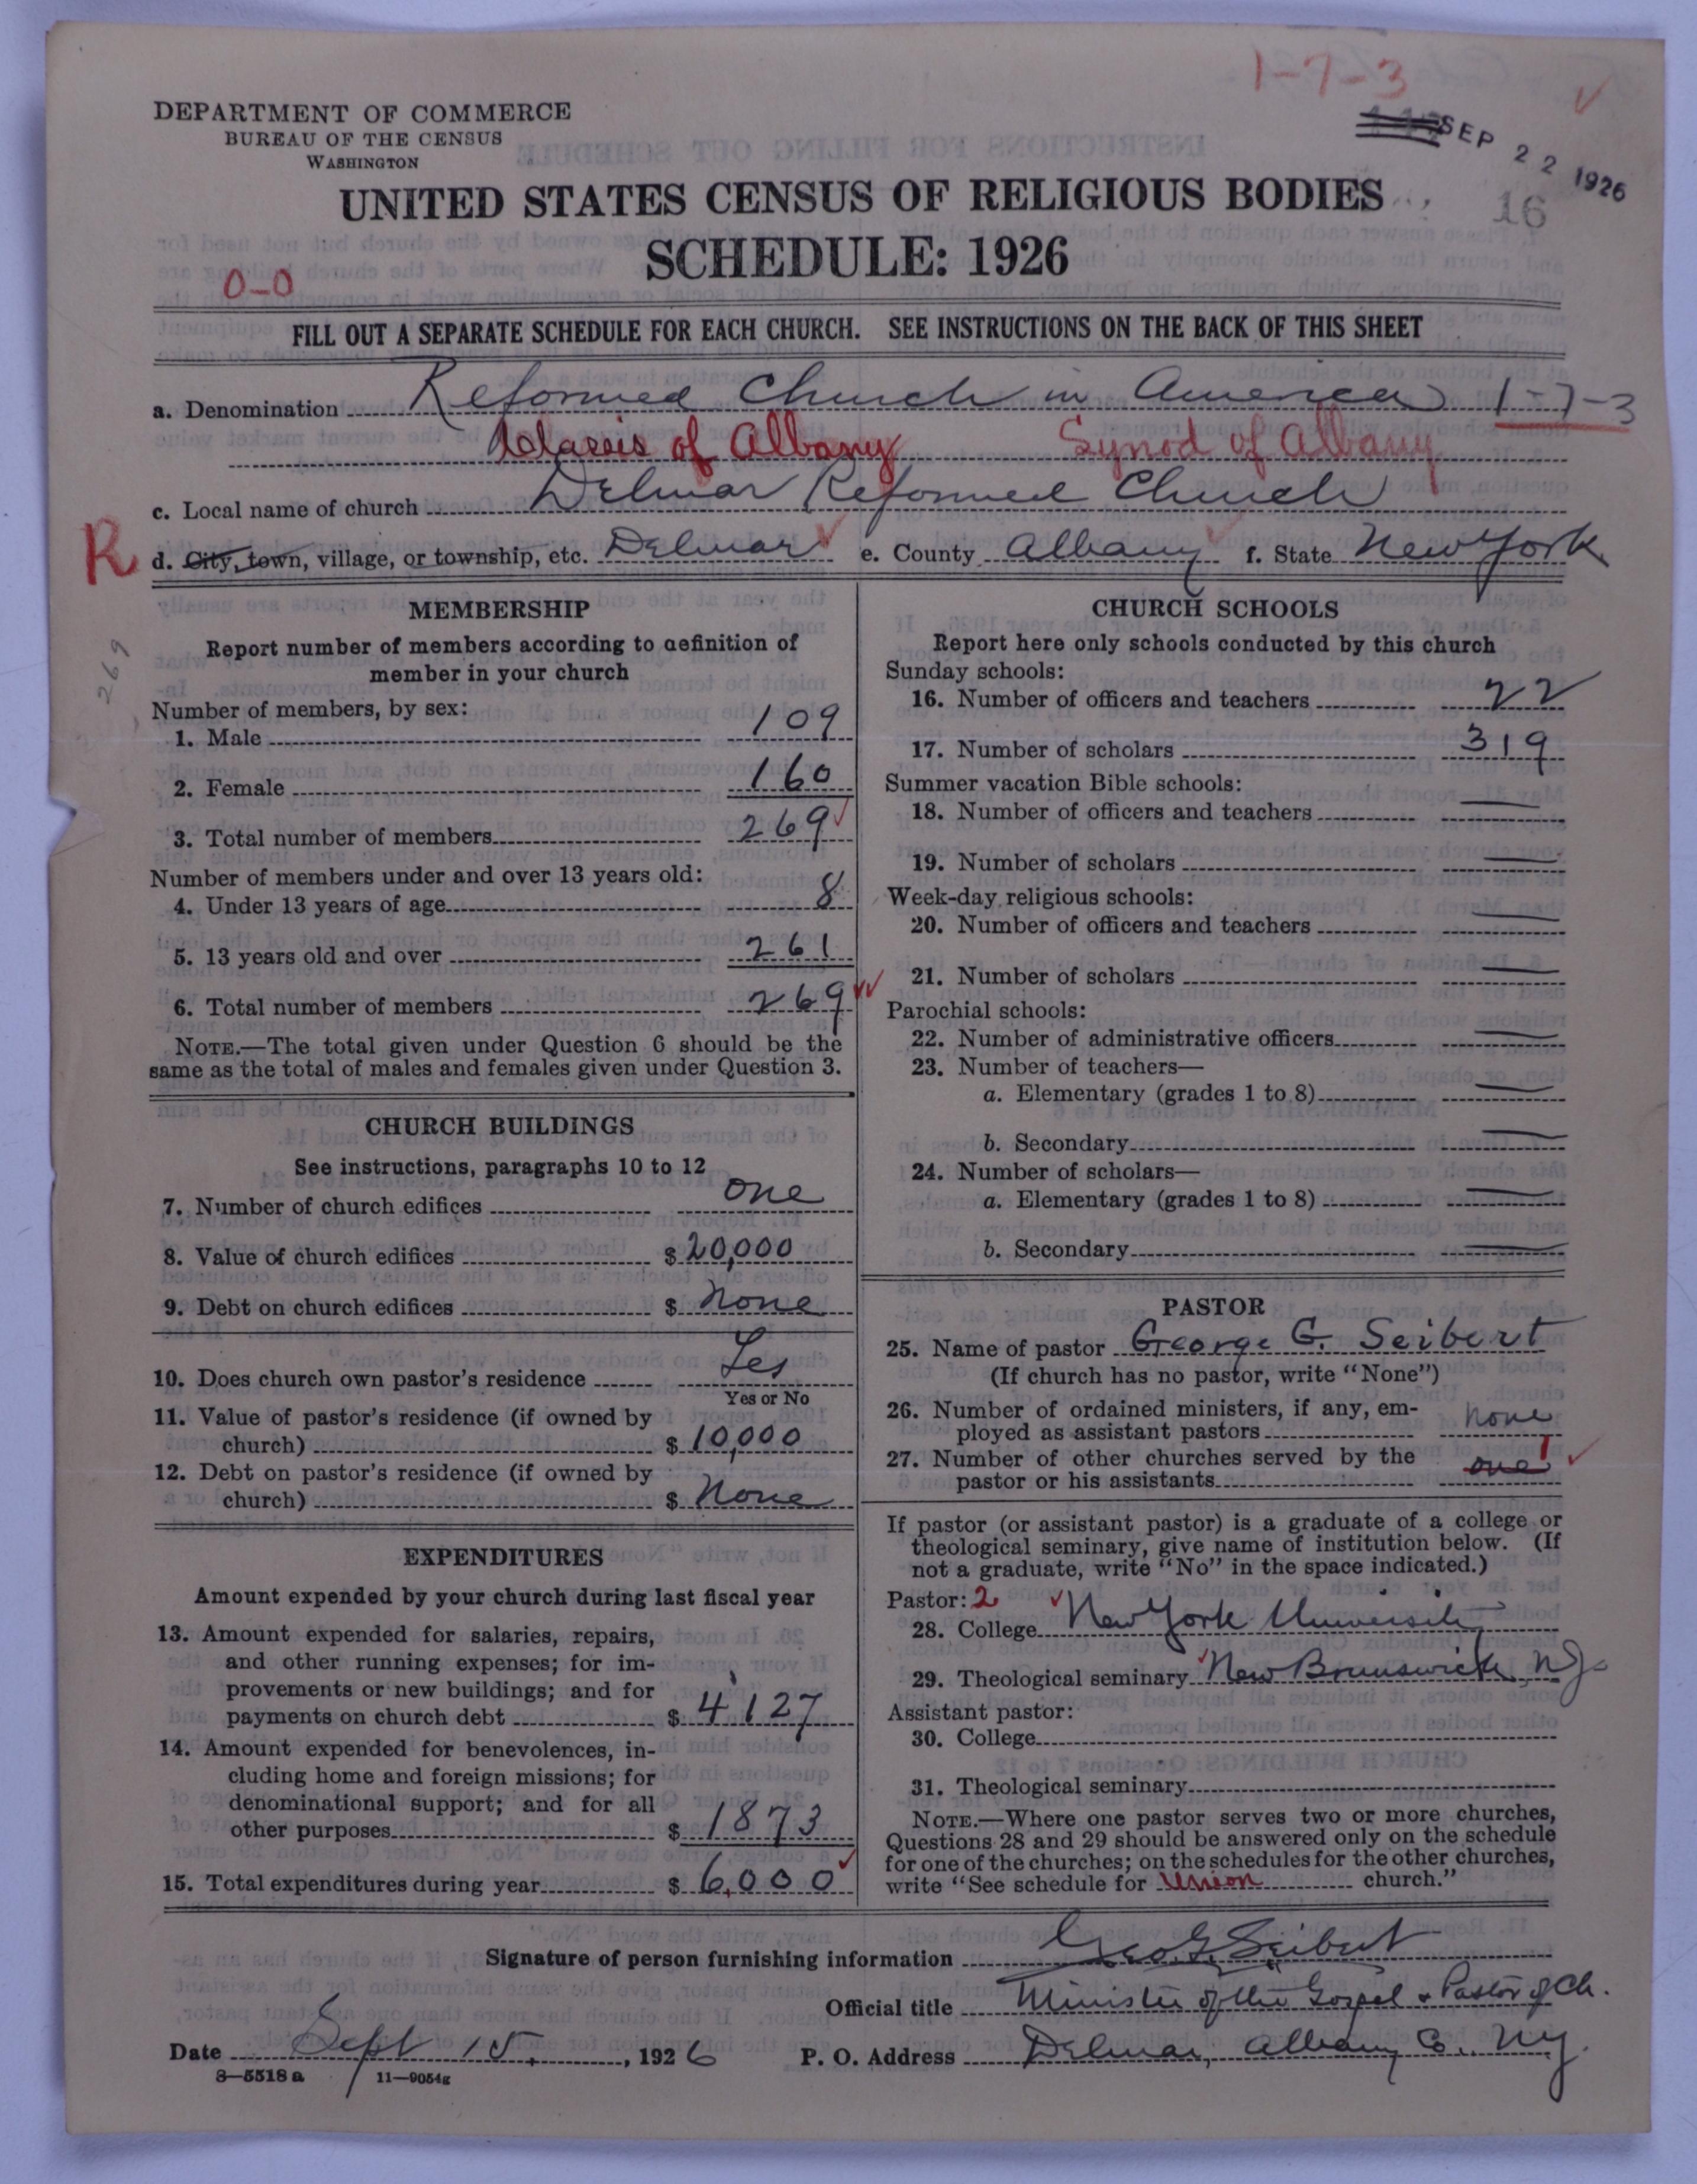 1-7-3
SEP 22 1926
16
DEPARTMENT OF COMMERCE
BUREAU OF THE CENSUS
WASHINGTON
UNITED STATES CENSUS OF RELIGIOUS BODIES
SCHEDULE: 1926
0-0
FILL OUT A SEPARATE SCHEDULE FOR EACH CHURCH. SEE INSTRUCTIONS ON THE BACK OF THIS SHEET
a. Denomination Reformed Church in America 1-7-3
Classis of Albany Synod of Albany
c. Local name of church Delmar Reformed Church
R d. City, town, village, or township, etc. Delmar e. County Albany f. State New York
269
MEMBERSHIP
Report number of members according to definition of
member in your church
Number of members, by sex:
1. Male 109
2. Female 160
3. Total number of members 269
Number of members under and over 13 years old:
4. Under 13 years of age 8
5. 13 years old and over 261
6. Total number of members 269
NOTE.—The total given under Question 6 should be the
same as the total of males and females given under Question 3.
CHURCH BUILDINGS
See instructions, paragraphs 10 to 12
7. Number of church edifices one
8. Value of church edifices $ 20,000
9. Debt on church edifices $ None
10. Does church own pastor's residence Yes
Yes or No
11. Value of pastor's residence (if owned by
church) $ 10,000
12. Debt on pastor's residence (if owned by
church) $ None
EXPENDITURES
Amount expended by your church during last fiscal year
13. Amount expended for salaries, repairs,
and other running expenses; for im-
provements or new buildings; and for
payments on church debt $ 4,127
14. Amount expended for benevolences, in-
cluding home and foreign missions; for
denominational support; and for all
other purposes $ 1873
15. Total expenditures during year $ 6,000
CHURCH SCHOOLS
Report here only schools conducted by this church
Sunday schools:
16. Number of officers and teachers 22
17. Number of scholars 319
Summer vacation Bible schools:
18. Number of officers and teachers —
19. Number of scholars —
Week-day religious schools:
20. Number of officers and teachers —
21. Number of scholars —
Parochial schools:
22. Number of administrative officers —
23. Number of teachers—
a. Elementary (grades 1 to 8) —
b. Secondary —
24. Number of scholars—
a. Elementary (grades 1 to 8) —
b. Secondary —
PASTOR
25. Name of pastor George G. Seibert
(If church has no pastor, write "None")
26. Number of ordained ministers, if any, em-
ployed as assistant pastors none
27. Number of other churches served by the
pastor or his assistants one 1
If pastor (or assistant pastor) is a graduate of a college or
theological seminary, give name of institution below. (If
not a graduate, write "No" in the space indicated.)
Pastor: 2
28. College New York University
29. Theological seminary New Brunswick NJ
Assistant pastor:
30. College
31. Theological seminary
NOTE.—Where one pastor serves two or more churches,
Questions 28 and 29 should be answered only on the schedule
for one of the churches; on the schedules for the other churches,
write "See schedule for Union church."
Signature of person furnishing information Geo. G. Seibert
Official title Minister of the Gospel & Pastor of Ch.
Date Sept 15, 1926 P. O. Address Delmar, Albany Co., NY.
8—5518a 11—9054g